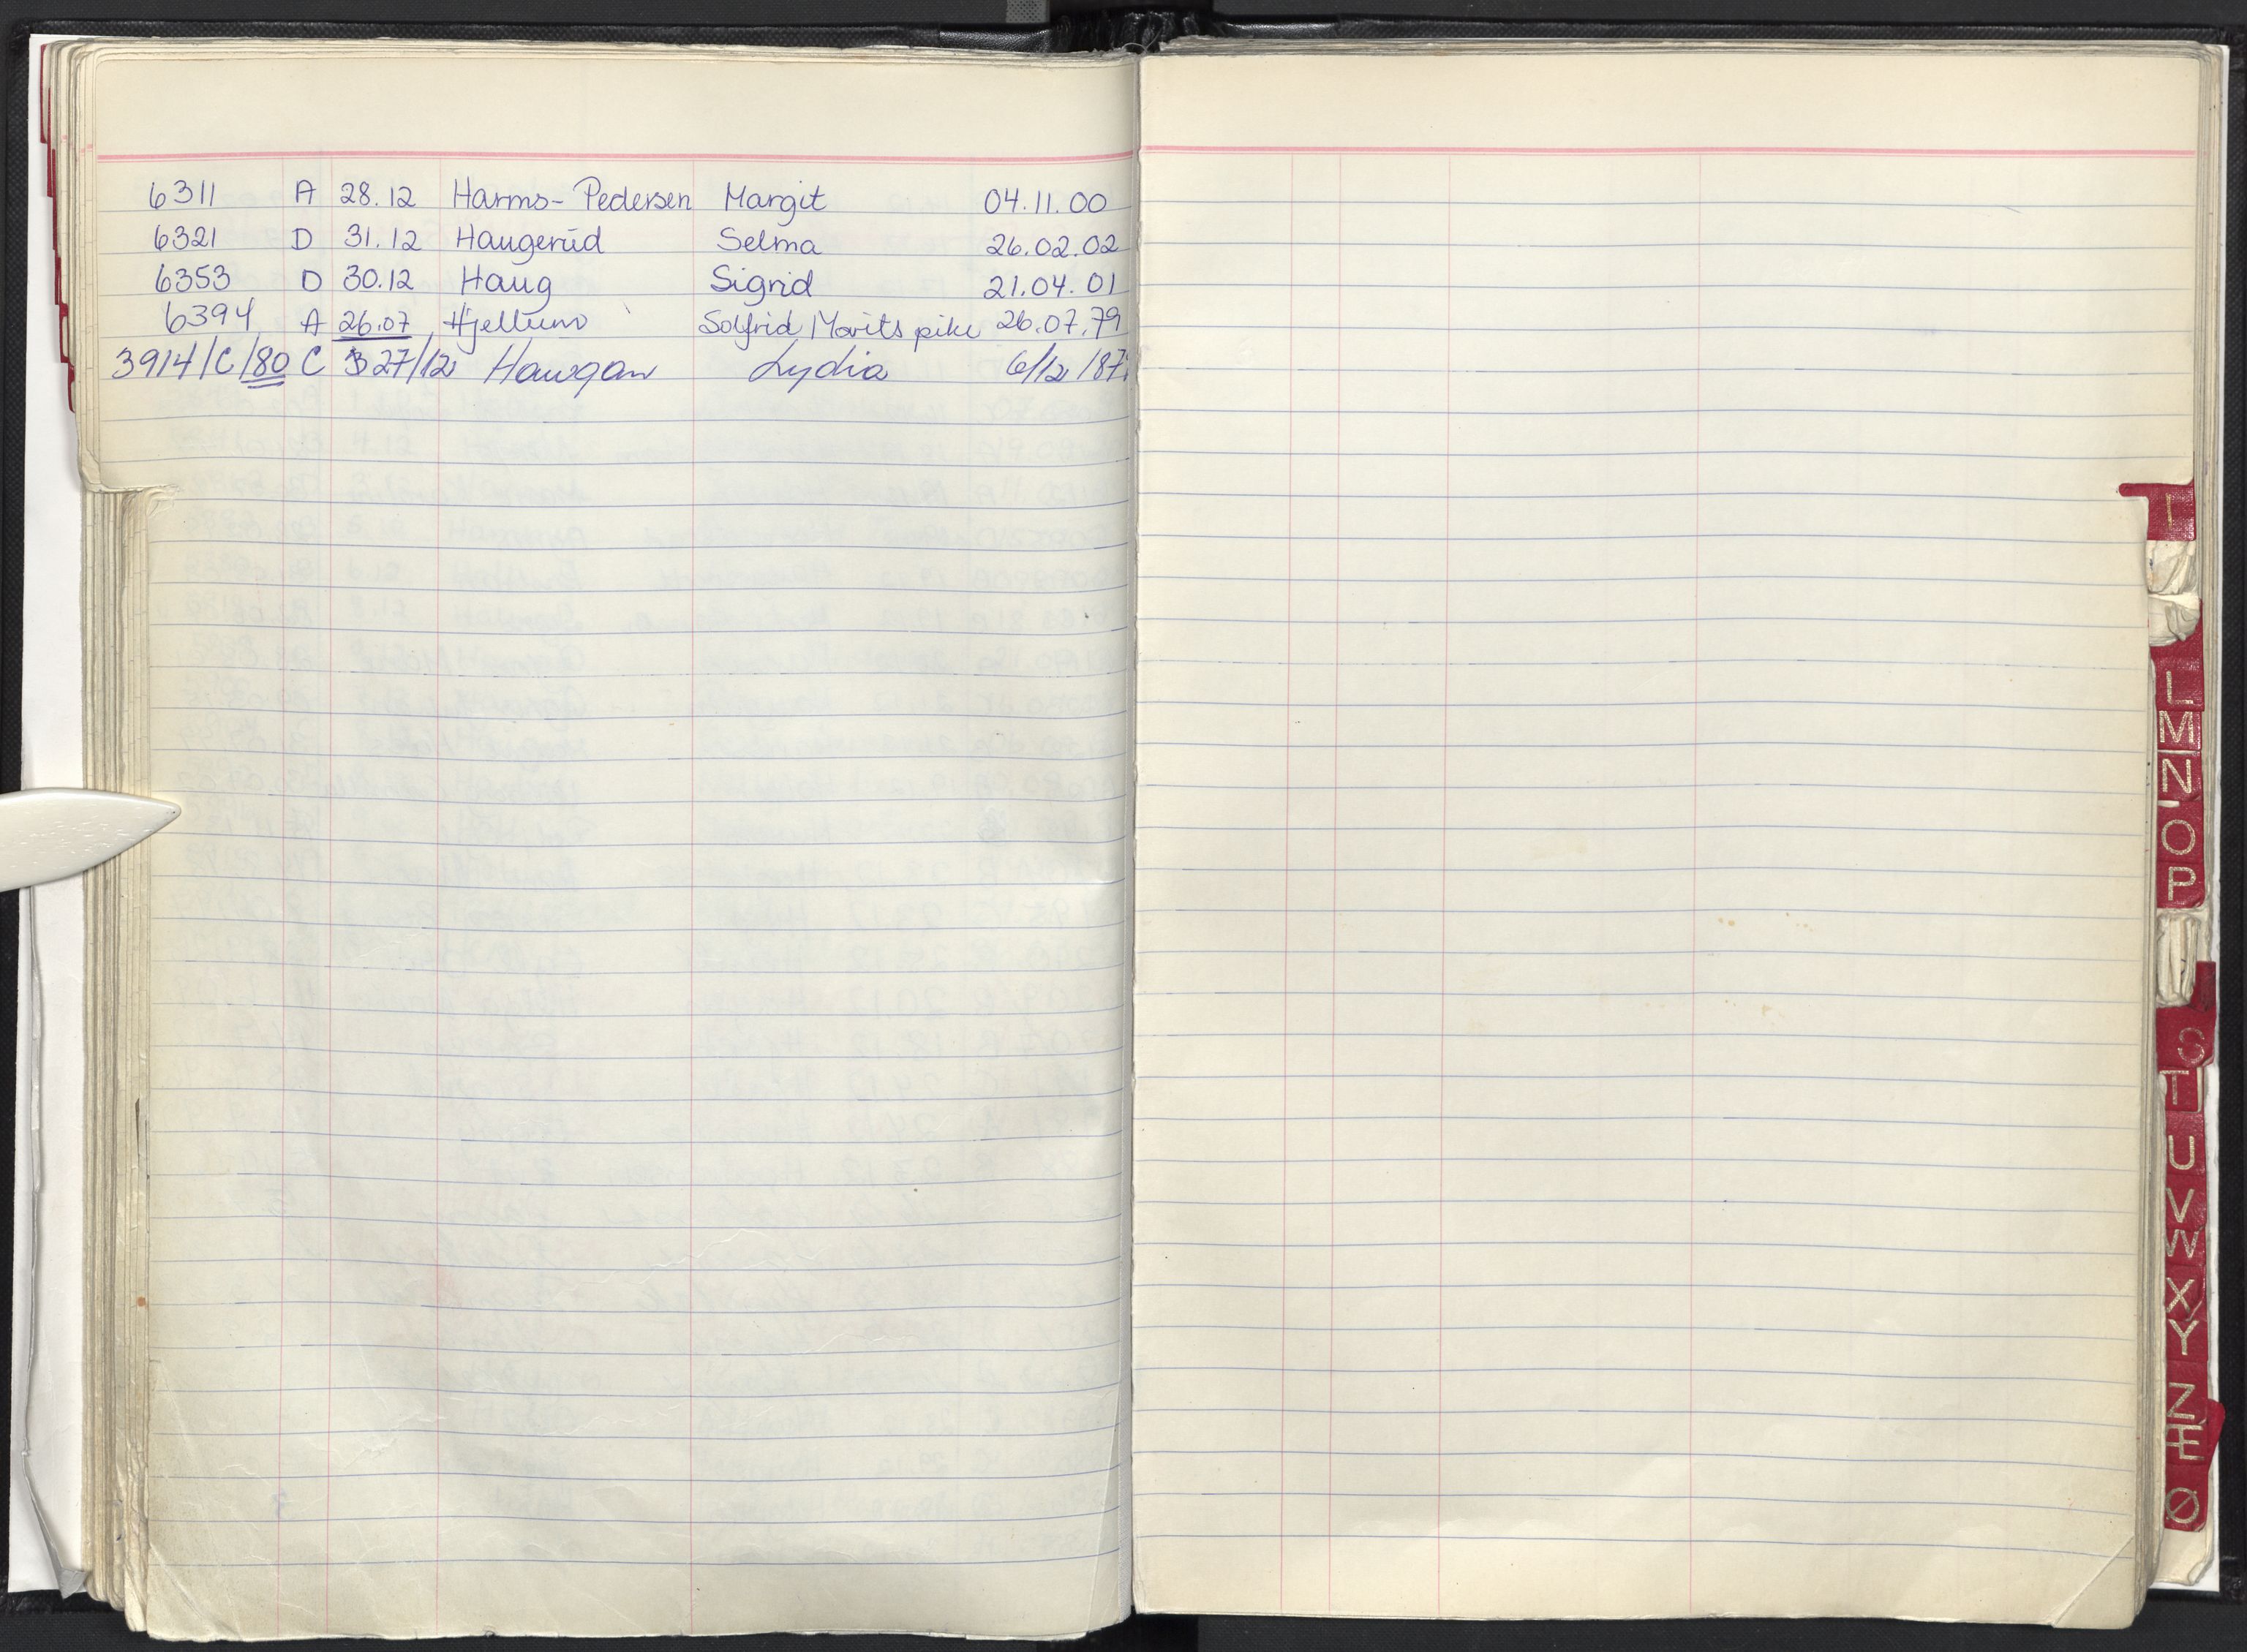 6311 A 28.12 Harms-Pedersen Margit 04.11.00
6321 D 31.12 Haugerud Selma 26.02.02
6353 D 30.12 Haug Sigrid 21.04.01
6394 A 26.07 Hjellum Solfrid Marits pike 26.07.79
3914/C/80 C 27/12 Haugan Lydia 6/12/87
I
L
M
N
O
P
S
T
U
V
W
X
Y
Z
Æ
Ø